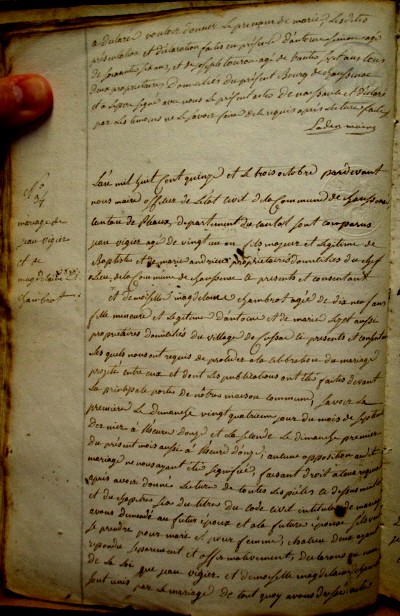 a déclaré vouloir donner le prenom de marie, lesdites
présentation et déclaration faites en présence d'antoine
de soixante six ans, et de agé de trente sept ans tous
deux propriétaires domiciliés du présent Bourg de chaussenac
et a signé avec nous le présent acte de naissance et déclaré
par les temoins ne le savoir faire de ce requis après lecture faite
N.o
34
mariage de
jean vigier
et de
magdelaine
Chambrot
L'an mil huit Cent quinze et le trois octobre pardevant
nous maire officier de l'état civil de la Commune de chaussenac
canton de Pleaux, département du cantal sont comparus
jean vigier agé de vingt un an fils majeur et légitime de
Baptiste et de marie andrieux propriétaires domiciliés du chef
Lieu de la Commune de chaussenac ce présents et consentant
Et demoiselle magdelaine Chambrot agée de dix neuf ans
fille mineure et légitime d'antoine et de marie aussi
propriétaires domiciliés du village de Cussac ce présents et consentant
lesquels nous ont requis de proceder a la célébration du mariage
projeté entre eux et dont les publications ont été faites devant
la principale porte de nôtre maison commune, savoir la
première le dimanche vingt quatrieme jour du mois de septembre
dernier a l'heure d'onze et la seconde le dimanche premier
du présent mois aussi a l'heure d'onze, aucune opposition audit
mariage ne nous ayant été signifiée, faisant droit a leur requisition
après avoir donné lecture de toutes les pièces ci dessus mentionnées
et du chapitre six du titre du code civil intitulé du mariage
avons demandé au futur époux et a la future épouse s'ils veulent
se prendre pour mari et pour femme, chacun d'eux ayant
répondu séparement et affirmativement, declarons au nom
de la loi que jean vigier et demoiselle magdelaine Chambrot
sont unis par le mariage de tout quoy avons dressé acte